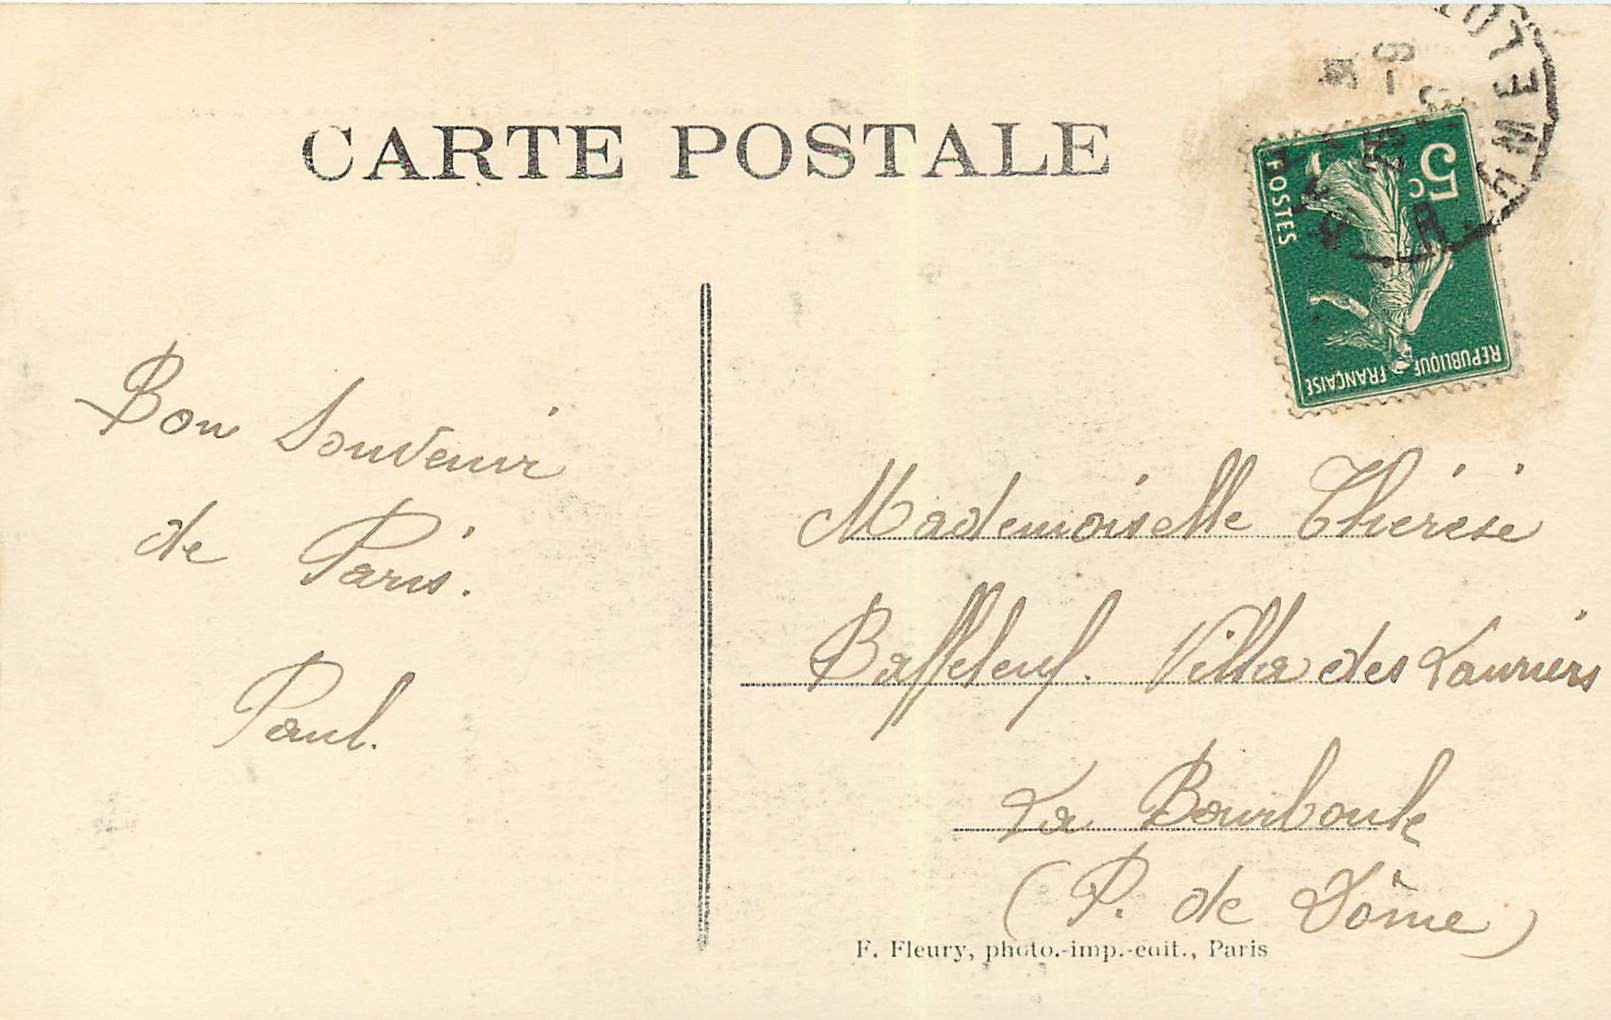 CARTE POSTALE
5c
POSTES
REPUBLIQUE FRANÇAISE
Bon Souvenir
de Paris.
Paul.
Mademoiselle Thérèse
Baffeleuf. Villa des Lauriers
La Bourboule
(P. de Dôme)
F. Fleury, photo.-imp.-edit., Paris